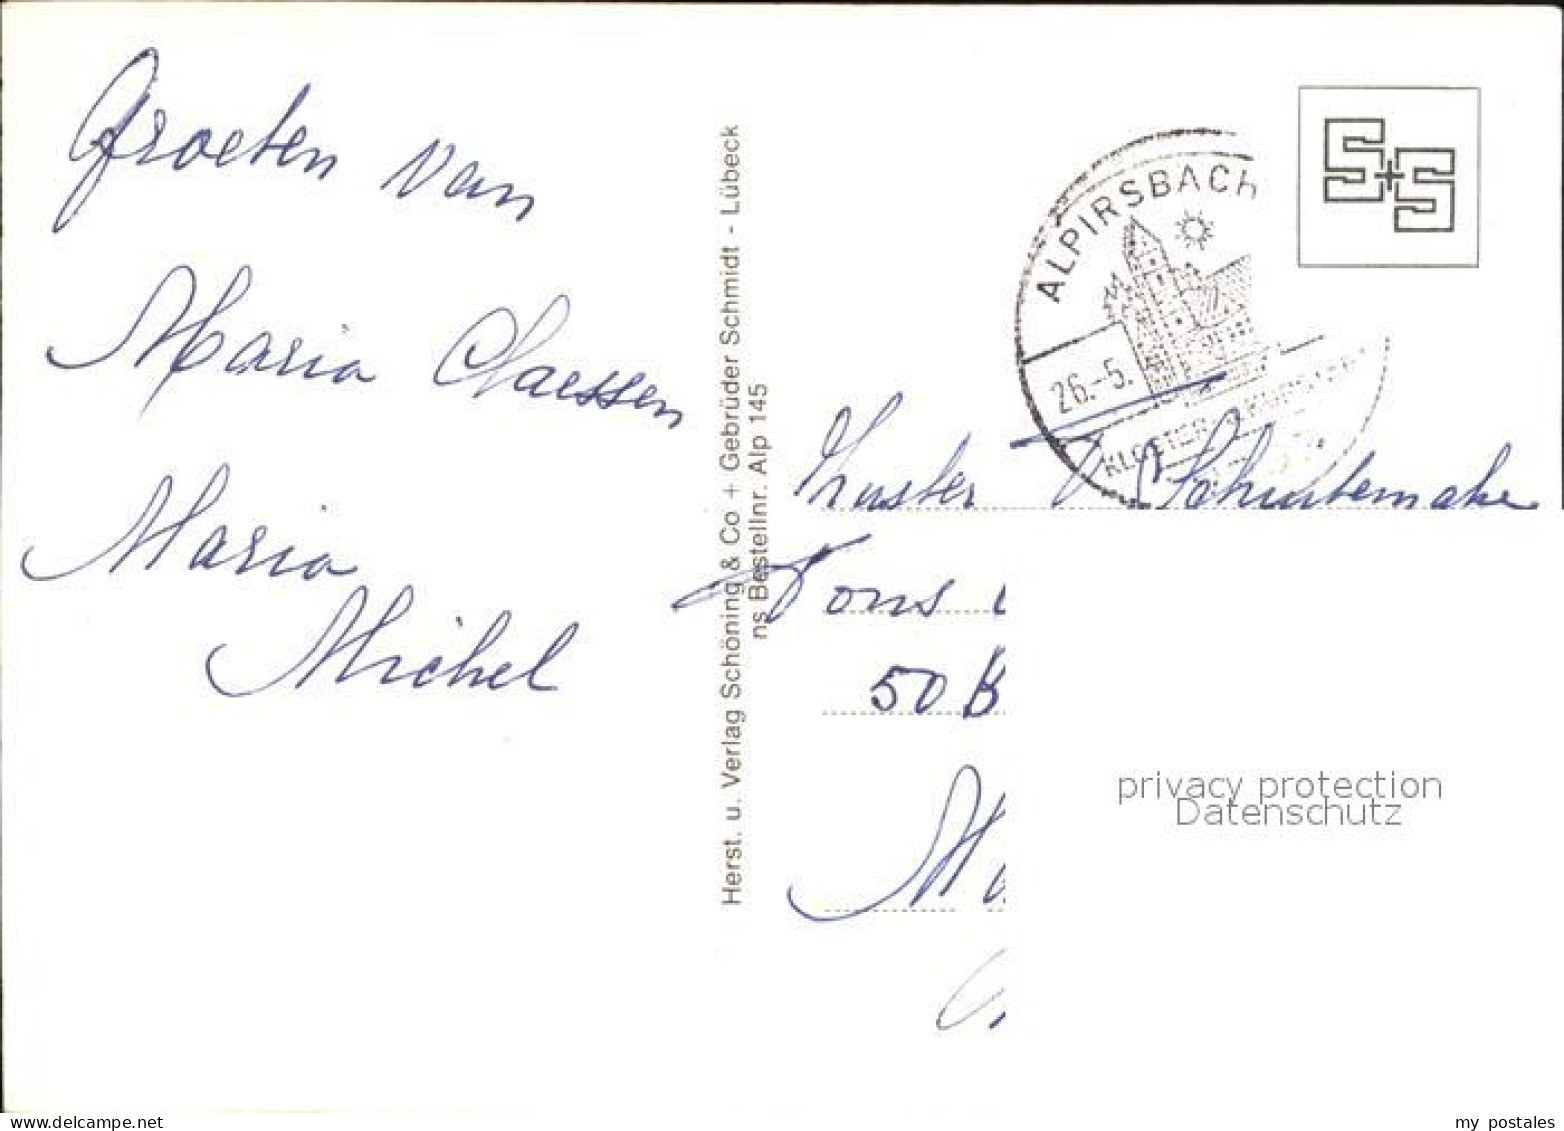 Groeten van
Maria Claessen
Maria
Michel
Herst. u. Verlag Schöning & Co + Gebrüder Schmidt - Lübeck
ns Bestellnr. Alp 145
S+S
ALPIRSBACH
26.-5.
KLOSTER
Zuster
Fons
50 B
privacy protection
Datenschutz
www.delcampe.net
my_postales